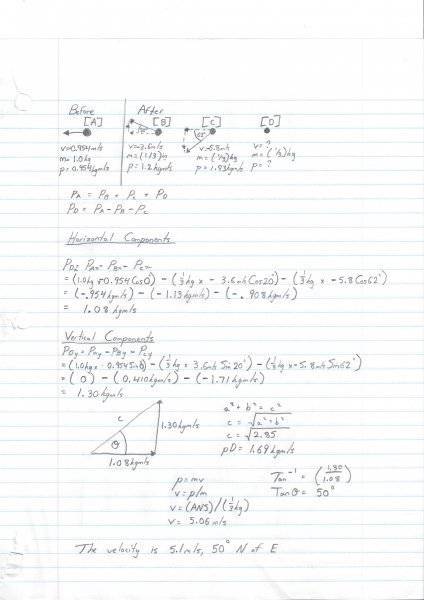 Before After
[A] [B] [C] [D]
20° 62°
v=0.954m/s v=3.6m/s v=5.8m/s v= ?
m=1.0kg m=(1/3)kg m=(1/3)kg m=(1/3)kg
p=0.954kgm/s p=1.2kgm/s p=1.93kgm/s p= ?
PA = PB + PC + PD
PD = PA - PB - PC
Horizontal Components
PDx = PAx - PBx - PCx
= (1.0kg x -0.954Cos0) - (1/3kg x -3.6m/sCos20°) - (1/3kg x -5.8Cos62°)
= (-.954kgm/s) - (-1.13kgm/s) - (-.908kgm/s)
= 1.08kgm/s
Vertical Components
PDy = PAy - PBy - PCy
= (1.0kg x -0.954Sin0°) - (1/3kg x 3.6m/sSin20°) - (1/3kg x -5.8m/sSin62°)
= (0) - (0.410kgm/s) - (-1.71kgm/s)
= 1.30kgm/s
c 1.30kgm/s
θ
1.08kgm/s
a² + b² = c²
c = √a²+b²
c = √2.85
pD = 1.69kgm/s
p=mv
v=p/m
v=(ANS)/(1/3kg)
v= 5.06m/s
Tan⁻¹ = (1.30/1.08)
Tanθ = 50°
The velocity is 5.1m/s, 50° N of E